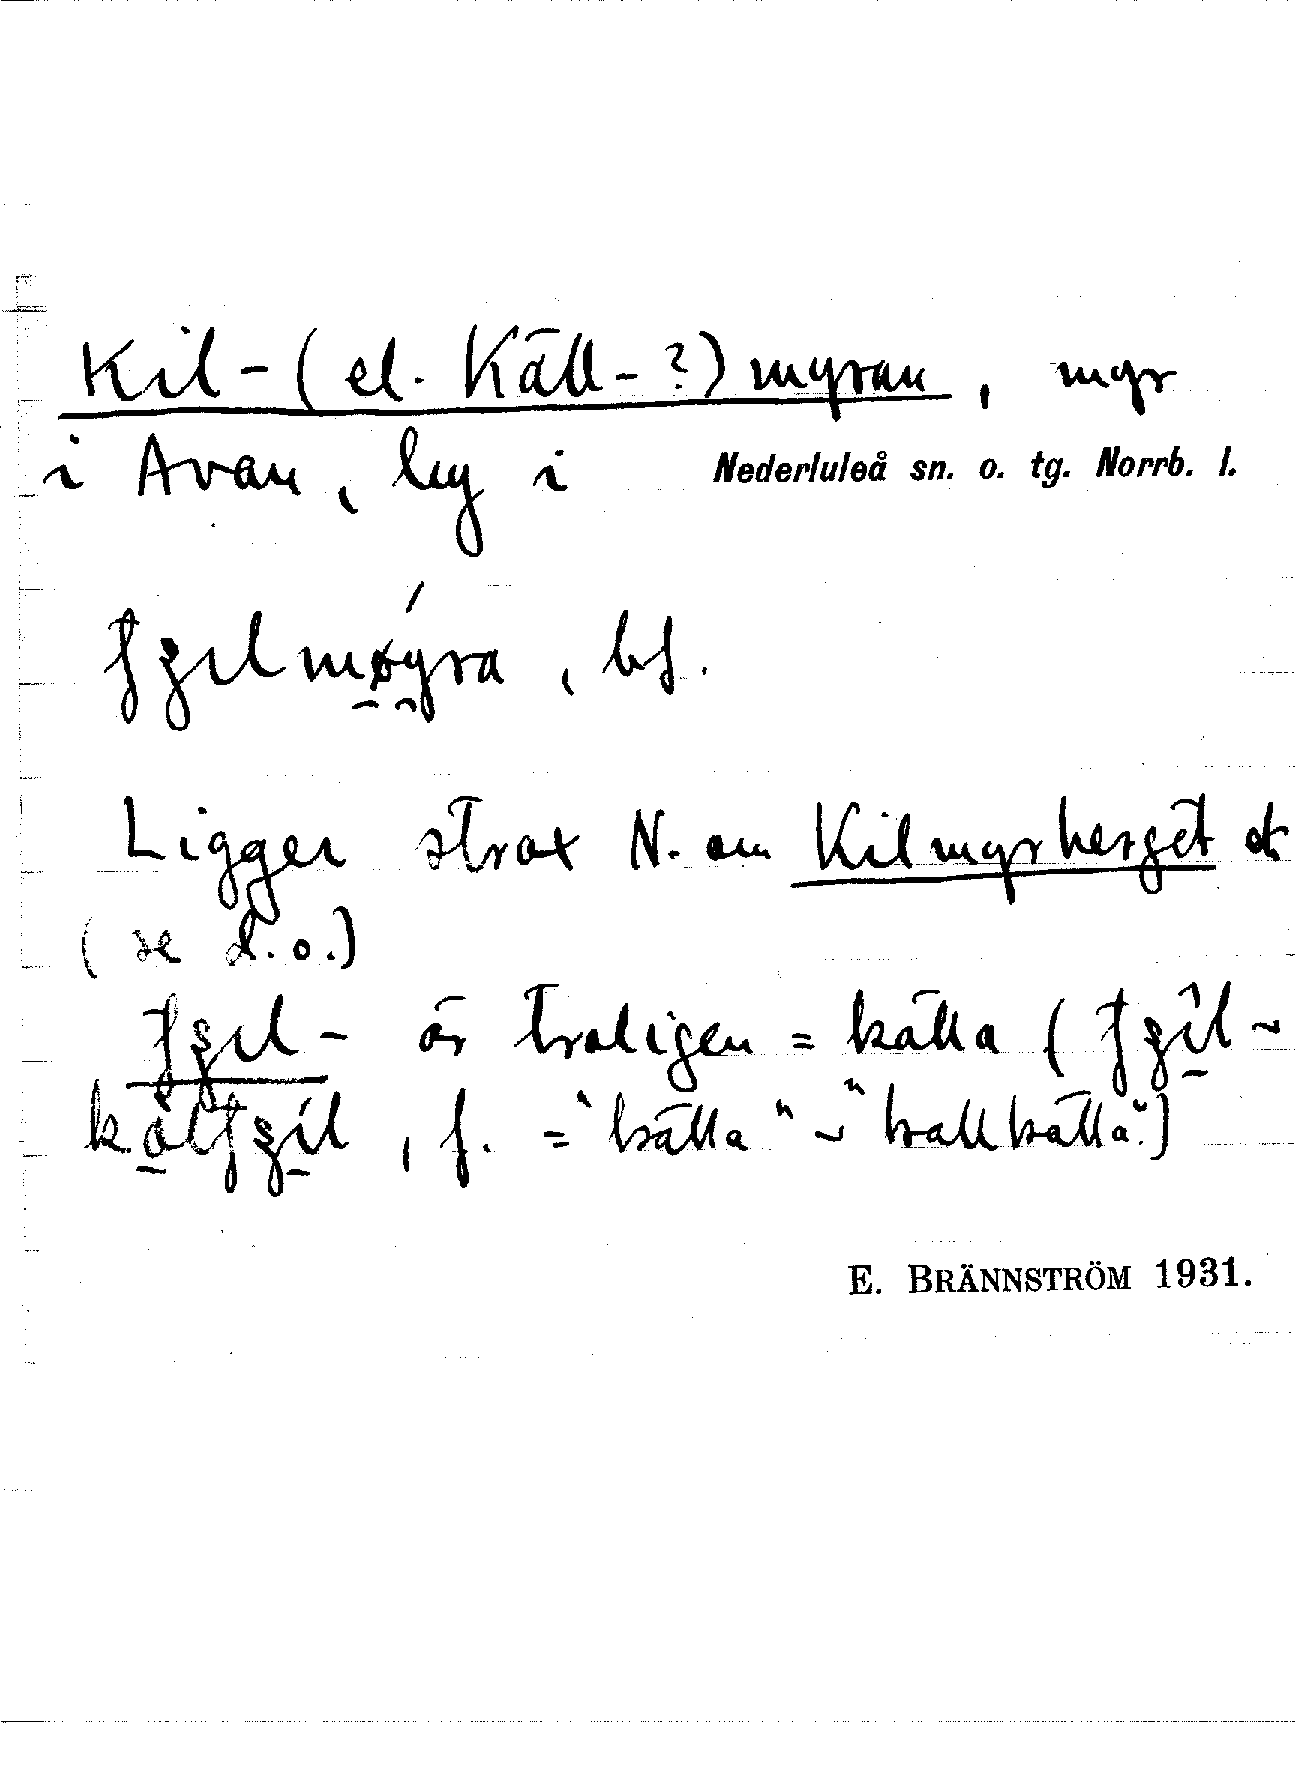 Kil-(el. Käll-?)myran, myr
i Avan, by i Nederluleå sn. o. tg. Norrb. l.
bf.
Ligger strax N. om Kilmyrberget
(se d.o.)
är troligen = källa (
, f. = "källa" ~ "kallkälla".)
E. BRÄNNSTRÖM 1931.